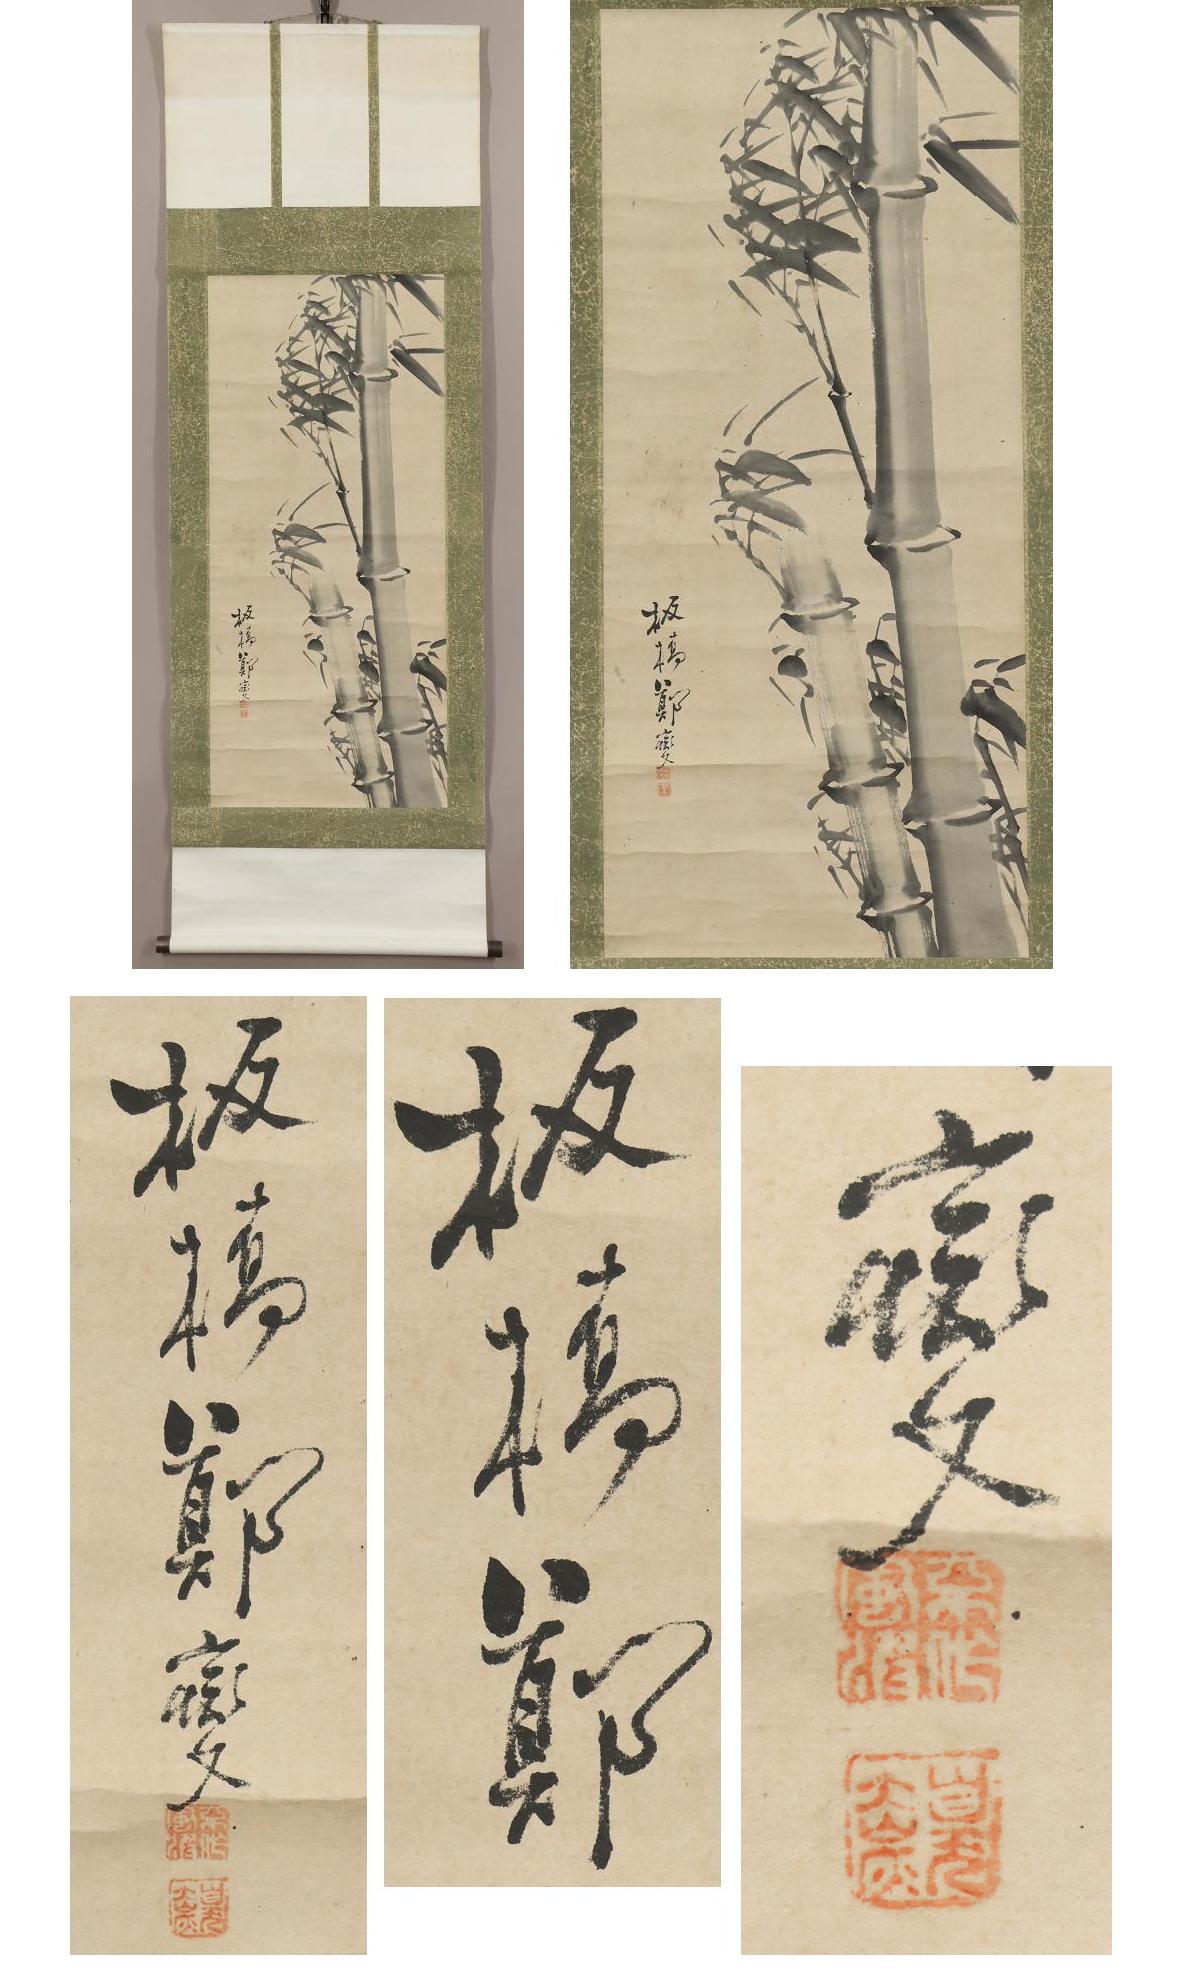 板橋鄭燮
板橋鄭燮
板橋鄭燮
板橋鄭
燮